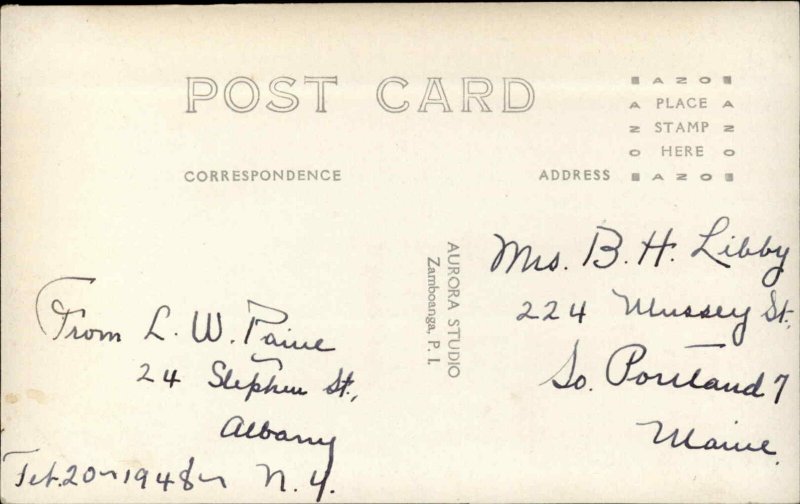 POST CARD
AZO
A PLACE A
Z STAMP Z
O HERE O
AZO
CORRESPONDENCE
ADDRESS
AURORA STUDIO
Zamboanga, P. I.
From L. W. Paine
24 Stephen St.,
Albany
N. Y.
Feb. 20 - 1948 -
Mrs. B. H. Libby
224 Mussey St.
So. Portland 7
Maine.